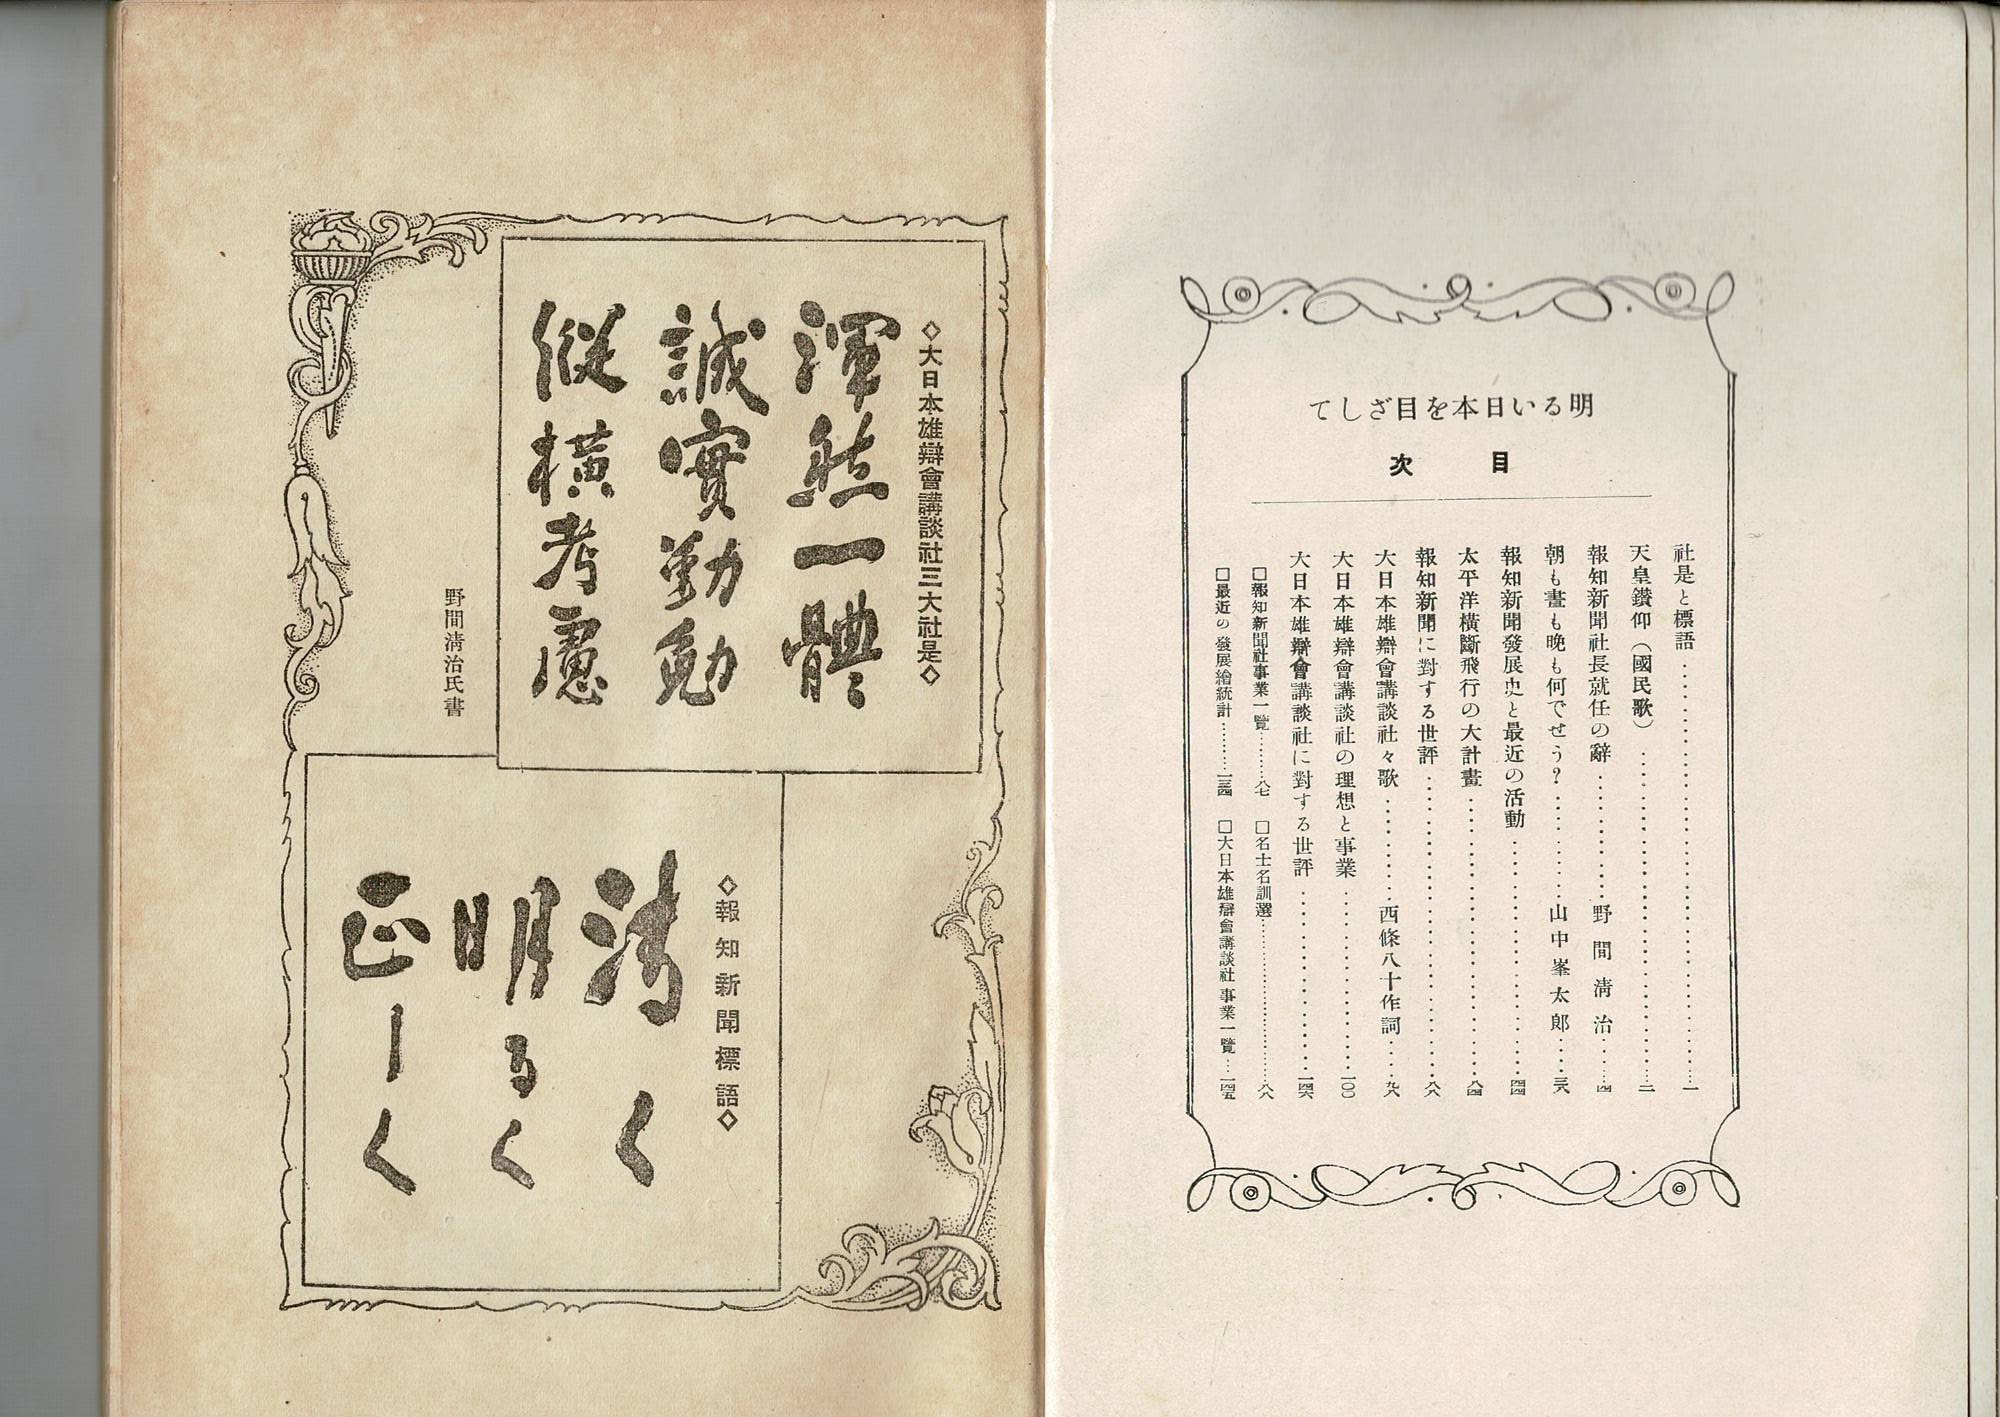 明るい日本を目ざして
目次
社是と標語……一
天皇鑽仰（國民歌）……二
報知新聞社長就任の辭……野間淸治……四
朝も晝も晩も何でせう？……山中峯太郎……三八
報知新聞發展史と最近の活動……四四
太平洋橫斷飛行の大計畫……八四
報知新聞に對する世評……八六
大日本雄辯會講談社々歌……西條八十作詞……九八
大日本雄辯會講談社の理想と事業……一〇〇
大日本雄辯會講談社に對する世評……一四六
□報知新聞社事業一覽……八七　□名士名訓選……八八
□最近の發展繪統計……一三四　□大日本雄辯會講談社事業一覽……一四五
◇大日本雄辯會講談社三大社是◇
渾然一體
誠實勤勉
縱橫考慮
野間淸治氏書
◇報知新聞標語◇
淸く
明るく
正しく